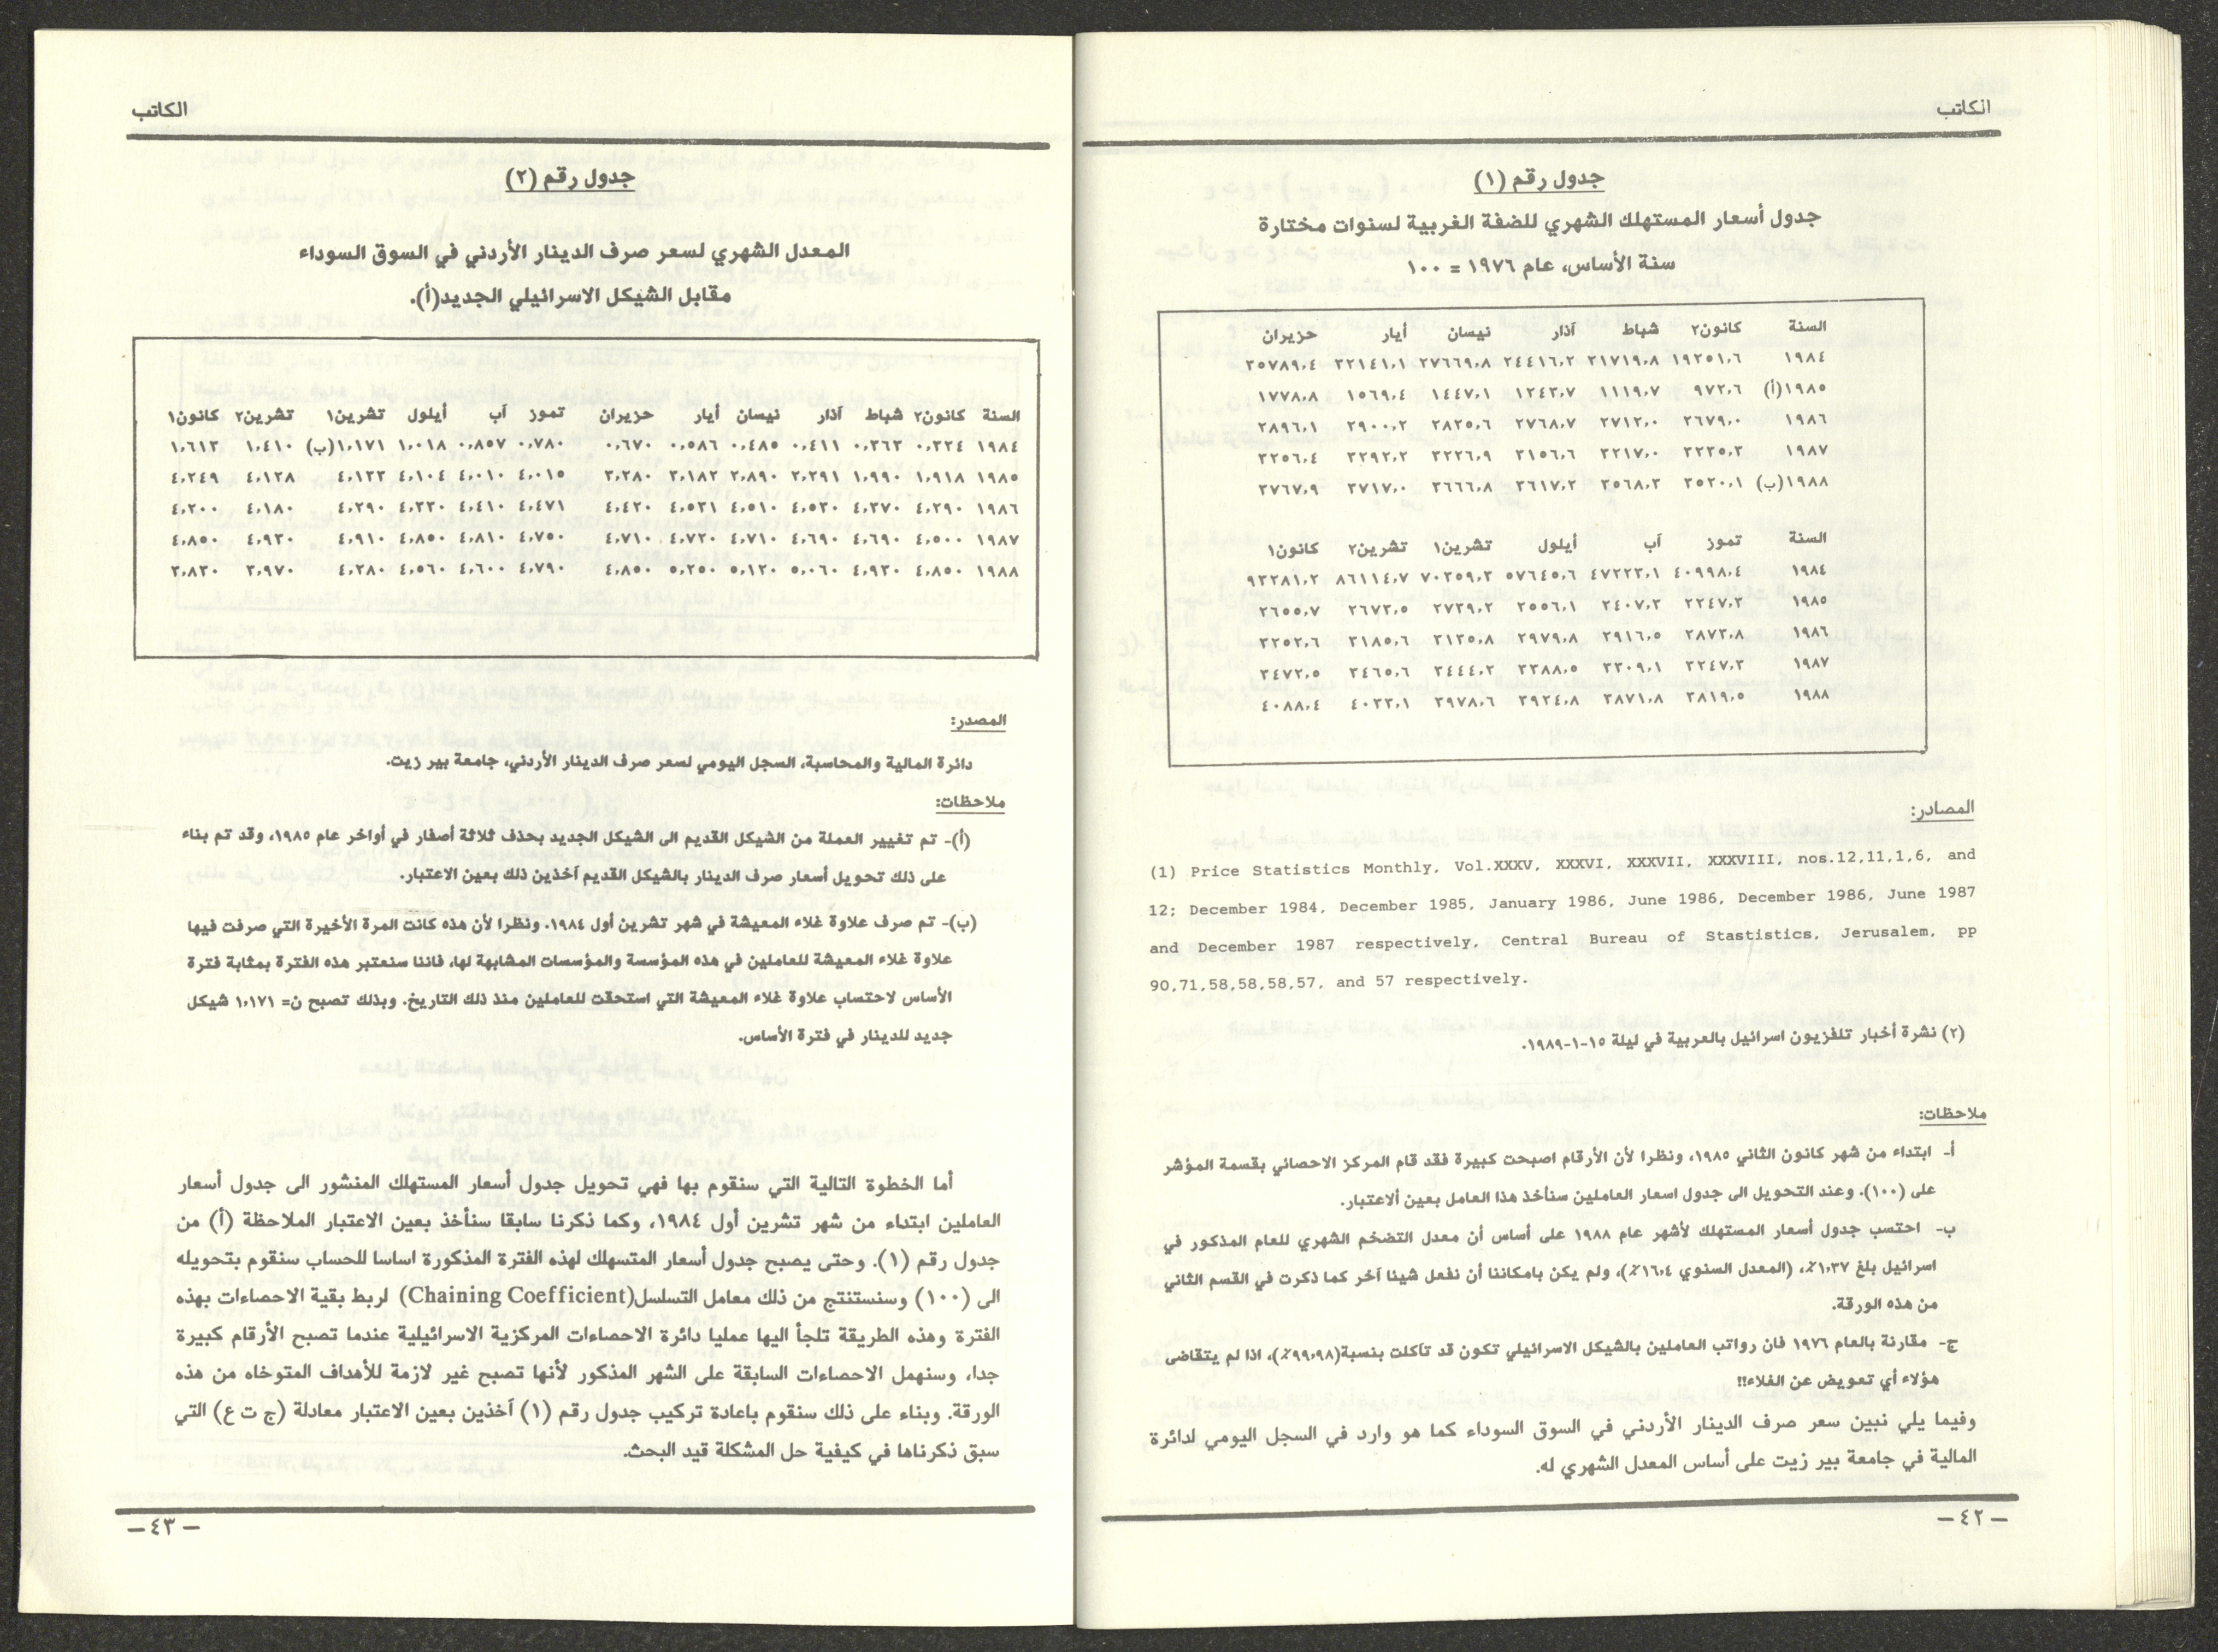 الكاتب
جدول رقم (١)
جدول أسعار المستهلك الشهري للضفة الغربية لسنوات مختارة
سنة الأساس، عام ١٩٧٦ = ١٠٠
السنة كانون٢ شباط آذار نيسان أيار حزيران
١٩٨٤ ١٩٢٥١،٦ ٢١٧١٩،٨ ٢٤٤١٦،٢ ٢٧٦٦٩،٨ ٣٢١٤١،١ ٣٥٧٨٩،٤
١٩٨٥(أ) ٩٧٢،٦ ١١١٩،٧ ١٢٤٣،٧ ١٤٤٧،١ ١٥٦٩،٤ ١٧٧٨،٨
١٩٨٦ ٢٦٧٩،٠ ٢٧١٢،٠ ٢٧٦٨،٧ ٢٨٢٥،٦ ٢٩٠٠،٢ ٢٨٩٦،١
١٩٨٧ ٣٢٣٥،٣ ٣٢١٧،٠ ٣١٥٦،٦ ٣٢٢٦،٩ ٣٢٩٢،٢ ٣٢٥٦،٤
١٩٨٨(ب) ٣٥٢٠،١ ٣٥٦٨،٣ ٣٦١٧،٢ ٣٦٦٦،٨ ٣٧١٧،٠ ٣٧٦٧،٩
السنة تموز آب أيلول تشرين١ تشرين٢ كانون١
١٩٨٤ ٤٠٩٩٨،٤ ٤٧٢٢٣،١ ٥٧٦٤٥،٦ ٧٠٢٥٩،٣ ٨٦١١٤،٧ ٩٣٢٨١،٢
١٩٨٥ ٢٢٤٧،٢ ٢٤٠٧،٣ ٢٥٥٦،١ ٢٧٣٩،٢ ٢٦٧٣،٥ ٢٦٥٥،٧
١٩٨٦ ٢٨٧٣،٨ ٢٩١٦،٥ ٢٩٧٩،٨ ٣١٣٥،٨ ٣١٨٥،٦ ٣٢٥٢،٦
١٩٨٧ ٣٢٤٧،٣ ٣٣٠٩،١ ٣٣٨٨،٥ ٣٤٤٤،٢ ٣٤٦٥،٦ ٣٤٧٢،٥
١٩٨٨ ٣٨١٩،٥ ٣٨٧١،٨ ٣٩٢٤،٨ ٣٩٧٨،٦ ٤٠٣٣،١ ٤٠٨٨،٤
المصادر:
(1) Price Statistics Monthly, Vol.XXXV, XXXVI, XXXVII, XXXVIII, nos.12,11,1,6, and
12; December 1984, December 1985, January 1986, June 1986, December 1986, June 1987
and December 1987 respectively, Central Bureau of Stastistics, Jerusalem, pp
90,71,58,58,58,57, and 57 respectively.
(٢) نشرة أخبار تلفزيون اسرائيل بالعربية في ليلة ١٥-١-١٩٨٩.
ملاحظات:
أ- ابتداء من شهر كانون الثاني ١٩٨٥، ونظرا لأن الأرقام اصبحت كبيرة فقد قام المركز الاحصائي بقسمة المؤشر
على (١٠٠). وعند التحويل الى جدول اسعار العاملين سنأخذ هذا العامل بعين ألاعتبار.
ب- احتسب جدول أسعار المستهلك لأشهر عام ١٩٨٨ على أساس أن معدل التضخم الشهري للعام المذكور في
اسرائيل بلغ ١،٣٧٪، (المعدل السنوي ١٦،٤٪)، ولم يكن بامكاننا أن نفعل شينا آخر كما ذكرت في القسم الثاني
من هذه الورقة.
ج- مقارنة بالعام ١٩٧٦ فان رواتب العاملين بالشيكل الاسرائيلي تكون قد تآكلت بنسبة(٩٩،٩٨٪)، اذا لم يتقاضى
هؤلاء أي تعويض عن الغلاء!!
وفيما يلي نبين سعر صرف الدينار الأردني في السوق السوداء كما هو وارد في السجل اليومي لدائرة
المالية في جامعة بير زيت على أساس المعدل الشهري له.
– ٤٢ –
الكاتب
جدول رقم (٢)
المعدل الشهري لسعر صرف الدينار الأردني في السوق السوداء
مقابل الشيكل الاسرائيلي الجديد(أ).
السنة كانون٢ شباط آذار نيسان أيار حزيران تموز آب أيلول تشرين١ تشرين٢ كانون١
١٩٨٤ ٠،٣٢٤ ٠،٣٦٣ ٠،٤١١ ٠،٤٨٥ ٠،٥٨٦ ٠،٦٧٠ ٠،٧٨٠ ٠،٨٥٧ ١،٠١٨ ١،١٧١(ب) ١،٤١٠ ١،٦١٣
١٩٨٥ ١،٩١٨ ١،٩٩٠ ٢،٢٩١ ٢،٨٩٠ ٣،١٨٢ ٣،٢٨٠ ٤،٠١٥ ٤،٠١٠ ٤،١٠٤ ٤،١٣٣ ٤،١٣٨ ٤،٢٤٩
١٩٨٦ ٤،٢٩٠ ٤،٣٧٠ ٤،٥٣٠ ٤،٥١٠ ٤،٥٣١ ٤،٤٢٠ ٤،٤٧١ ٤،٤١٠ ٤،٣٣٠ ٤،٢٩٠ ٤،١٨٠ ٤،٢٠٠
١٩٨٧ ٤،٥٠٠ ٤،٦٩٠ ٤،٦٩٠ ٤،٧١٠ ٤،٧٢٠ ٤،٧١٠ ٤،٧٥٠ ٤،٨١٠ ٤،٨٥٠ ٤،٩١٠ ٤،٩٣٠ ٤،٨٥٠
١٩٨٨ ٤،٨٥٠ ٤،٩٣٠ ٥،٠٦٠ ٥،١٢٠ ٥،٢٥٠ ٤،٨٥٠ ٤،٧٩٠ ٤،٦٠٠ ٤،٥٦٠ ٤،٢٨٠ ٣،٩٧٠ ٣،٨٣٠
المصدر:
دائرة المالية والمحاسبة، السجل اليومي لسعر صرف الدينار الأردني، جامعة بير زيت.
ملاحظات:
(أ)- تم تغيير العملة من الشيكل القديم الى الشيكل الجديد بحذف ثلاثة أصفار في أواخر عام ١٩٨٥، وقد تم بناء
على ذلك تحويل أسعار صرف الدينار بالشيكل القديم آخذين ذلك بعين الاعتبار.
(ب)- تم صرف علاوة غلاء المعيشة في شهر تشرين أول ١٩٨٤. ونظرا لأن هذه كانت المرة الأخيرة التي صرفت فيها
علاوة غلاء المعيشة للعاملين في هذه المؤسسة والمؤسسات المشابهة لها، فاننا سنعتبر هذه الفترة بمثابة فترة
الأساس لاحتساب علاوة غلاء المعيشة التي استحقت للعاملين منذ ذلك التاريخ. وبذلك تصبح ن= ١،١٧١ شيكل
جديد للدينار في فترة الأساس.
أما الخطوة التالية التي سنقوم بها فهي تحويل جدول أسعار المستهلك المنشور الى جدول أسعار
العاملين ابتداء من شهر تشرين أول ١٩٨٤، وكما ذكرنا سابقا سنأخذ بعين الاعتبار الملاحظة (أ) من
جدول رقم (١). وحتى يصبح جدول أسعار المتسهلك لهذه الفترة المذكورة اساسا للحساب سنقوم بتحويله
الى (١٠٠) وسنستنتج من ذلك معامل التسلسل(Chaining Coefficient) لربط بقية الاحصاءات بهذه
الفترة وهذه الطريقة تلجأ اليها عمليا دائرة الاحصاءات المركزية الاسرائيلية عندما تصبح الأرقام كبيرة
جدا، وسنهمل الاحصاءات السابقة على الشهر المذكور لأنها تصبح غير لازمة للأهداف المتوخاه من هذه
الورقة. وبناء على ذلك سنقوم باعادة تركيب جدول رقم (١) آخذين بعين الاعتبار معادلة (ج ت ع) التي
سبق ذكرناها في كيفية حل المشكلة قيد البحث.
– ٤٣ –